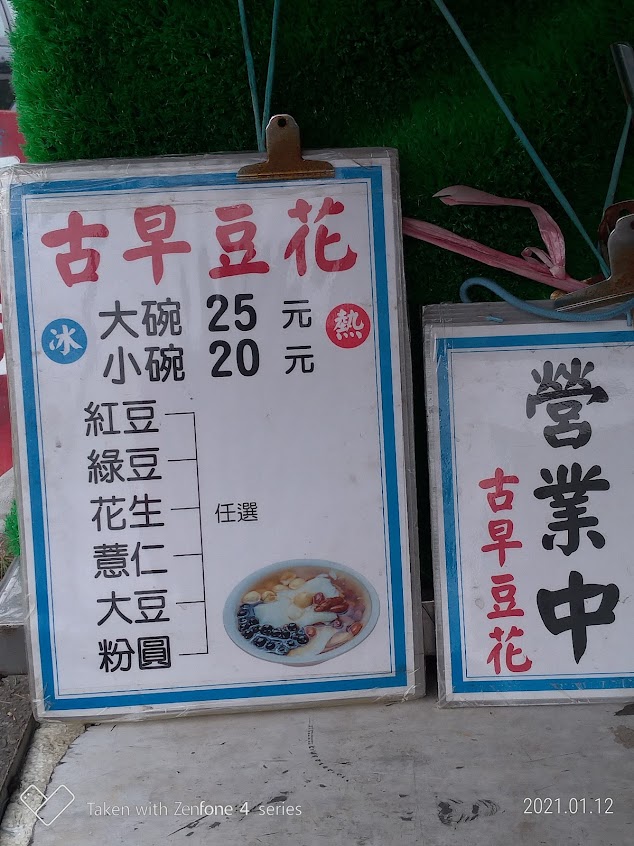 古早豆花
冰
大碗 25 元
小碗 20 元
熱
紅豆
綠豆
花生
薏仁
大豆
粉圓
任選
營業中
古早豆花
Taken with Zenfone 4 series
2021.01.12